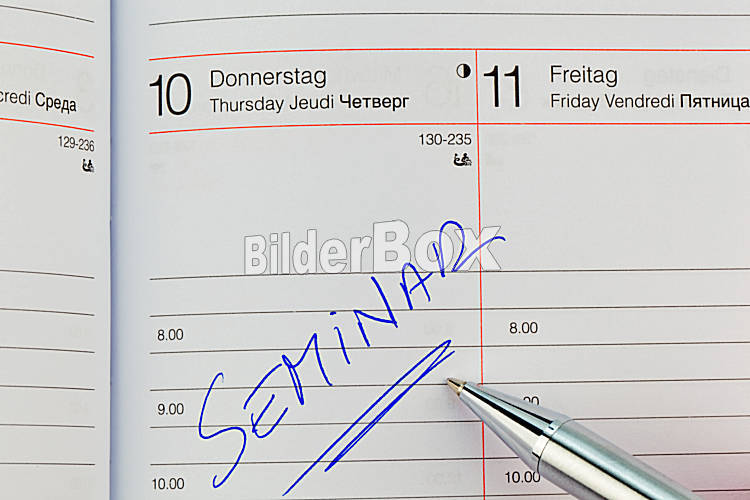 10 Donnerstag
Thursday Jeudi Четверг
11 Freitag
Friday Vendredi Пятница
credi Среда
129-236
130-235
BilderBox
SEMINAR
8.00
8.00
9.00
00
10.00
10.00